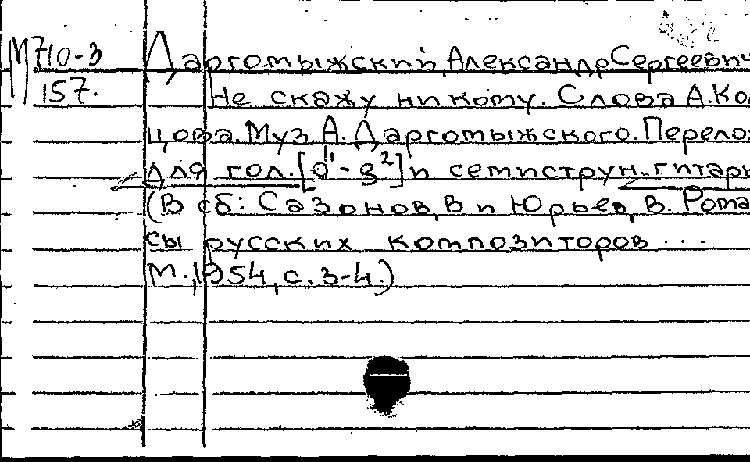 М710-3 Даргомыжский, Александр Сергеевич
157. Не скажу никому. Слова А. Коль
цова. Муз. А. Даргомыжского. Перелож
для гол. [d¹-g²] и семиструн. гитары
(В сб: Сазонов, В и Юрьев, В. Рома
сы русских композиторов ...
М., 1954, с. 3-4.)